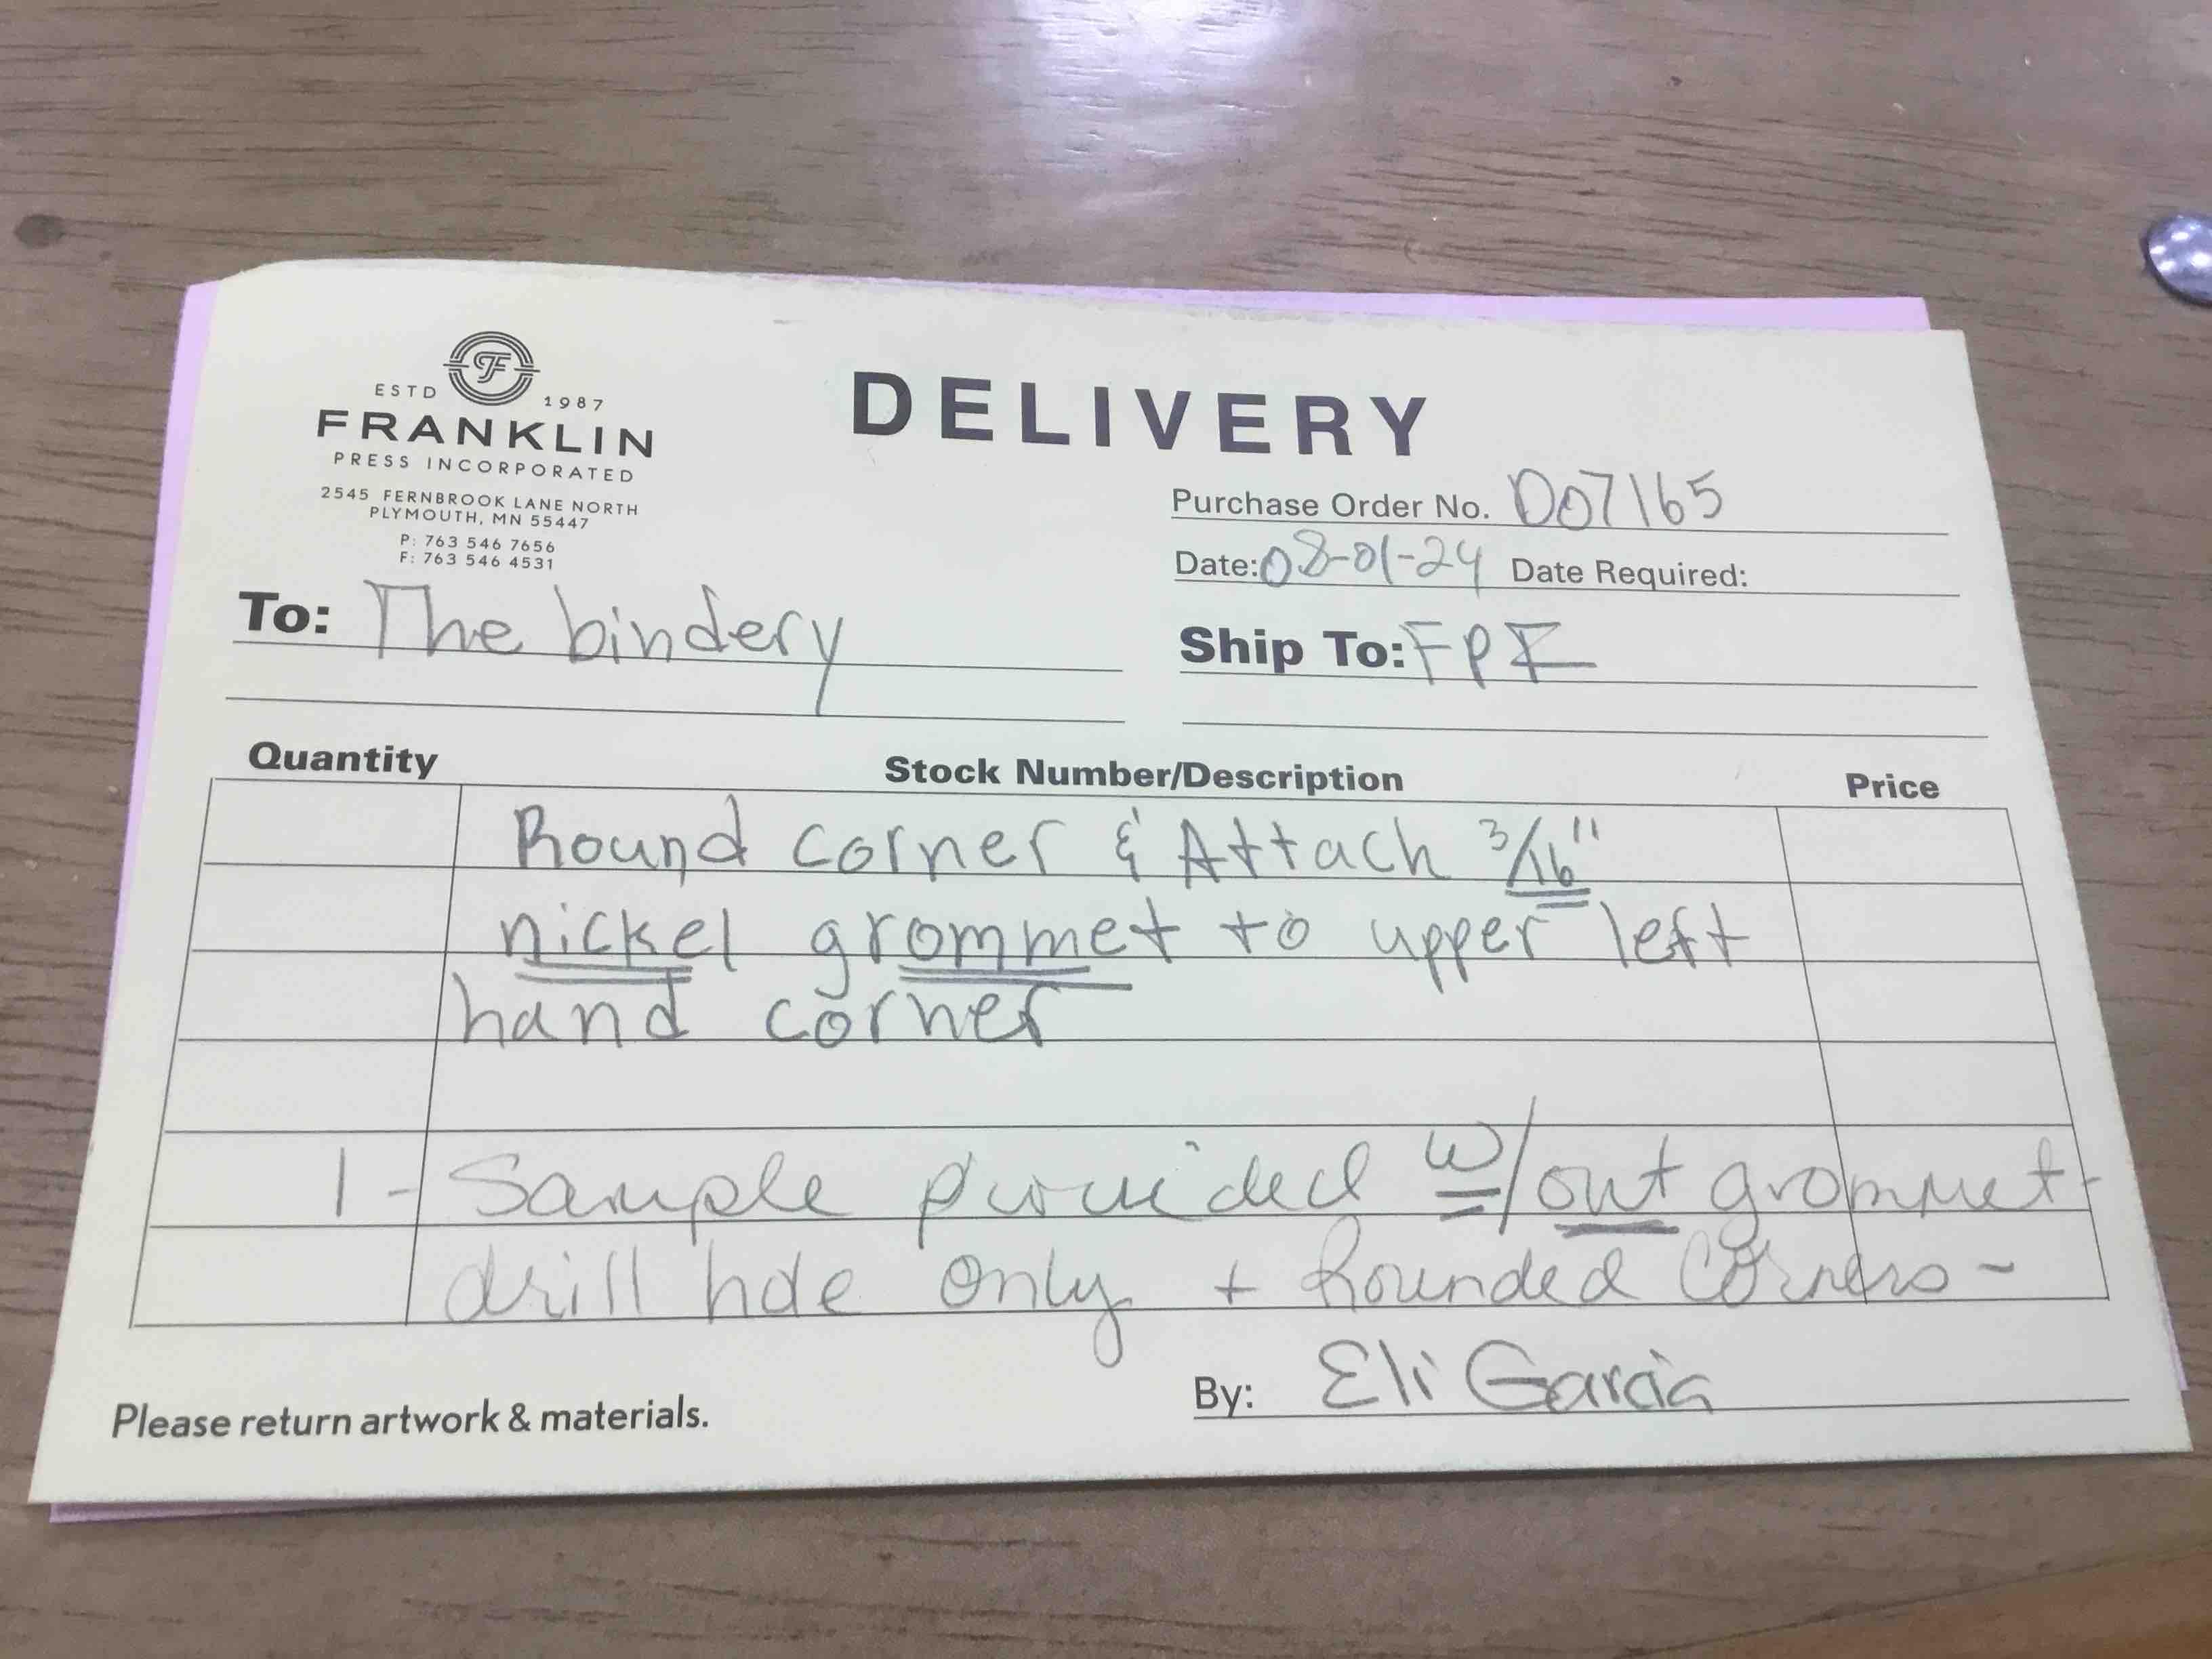 ESTD 1987
FRANKLIN
PRESS INCORPORATED
2545 FERNBROOK LANE NORTH
PLYMOUTH, MN 55447
P: 763 546 7656
F: 763 546 4531
DELIVERY
Purchase Order No. D07165
Date: 08-01-24 Date Required:
To: The bindery
Ship To: FPI
Quantity Stock Number/Description Price
Round corner & Attach 3/16"
nickel grommet to upper left
hand corner
1 - Sample provided w/out grommet -
drill hole only + Rounded Corners -
Please return artwork & materials.
By: Eli Garcia